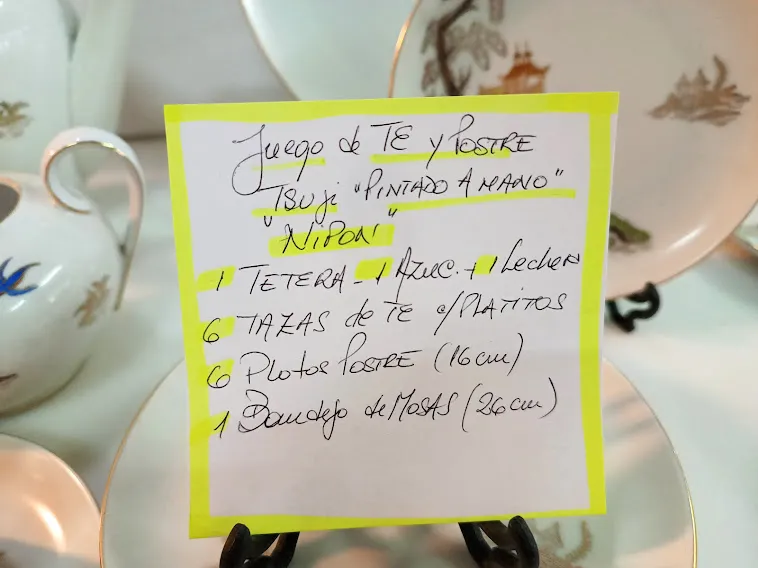 Juego de TE y POSTRE
TSUJI "PINTADO A MANO"
"NIPON"
1 TETERA - 1 AZUC. + 1 Lecher
6 TAZAS de TE c/PLATITOS
6 Platos POSTRE (16 cm)
1 Bandeja de MASAS (26 cm)